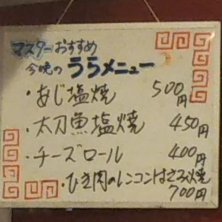 マスターおすすめ
今晩の うらメニュー
・あじ塩焼 500円
・太刀魚塩焼 450円
・チーズロール 400円
・ひき肉のレンコンはさみ焼
700円